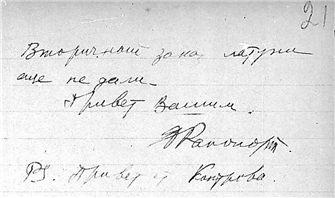 21
Вторичный заказ латуни
еще не дали.
Привет Вашим.
Рапопорт.
PS. Привет от Кантрова.